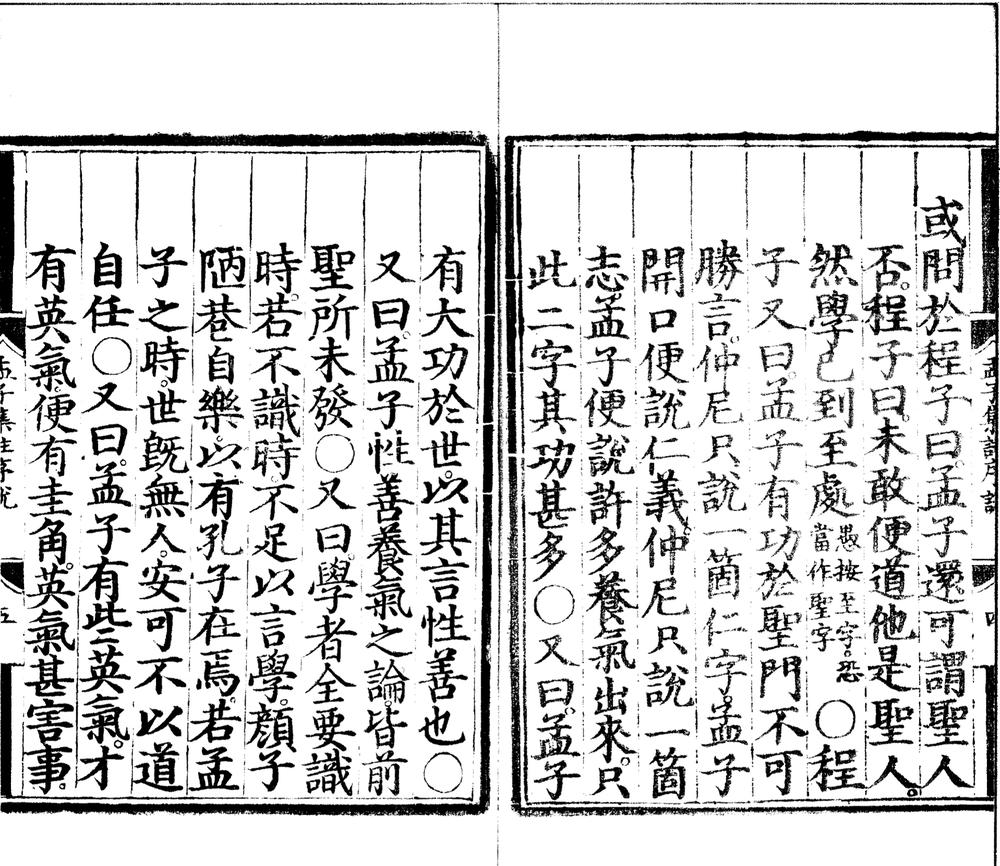 或問於程子曰。孟子還可謂聖人
否。程子曰。未敢便道他是聖人。
然學已到至處愚按至字。恐當作聖字〇程
子又曰。孟子有功於聖門不可
勝言。仲尼只說一箇仁字。孟子
開口便說仁義。仲尼只說一箇
志。孟子便說許多養氣出來。只
此二字其功甚多〇又曰。孟子
有大功於世。以其言性善也〇
又曰。孟子性善養氣之論。皆前
聖所未發〇又曰。學者全要識
時。若不識時。不足以言學。顏子
陋巷自樂。以有孔子在焉。若孟
子之時。世既無人。安可不以道
自任〇又曰。孟子有此二英氣。才
有英氣。便有圭角。英氣甚害事。
孟子集註序說
五